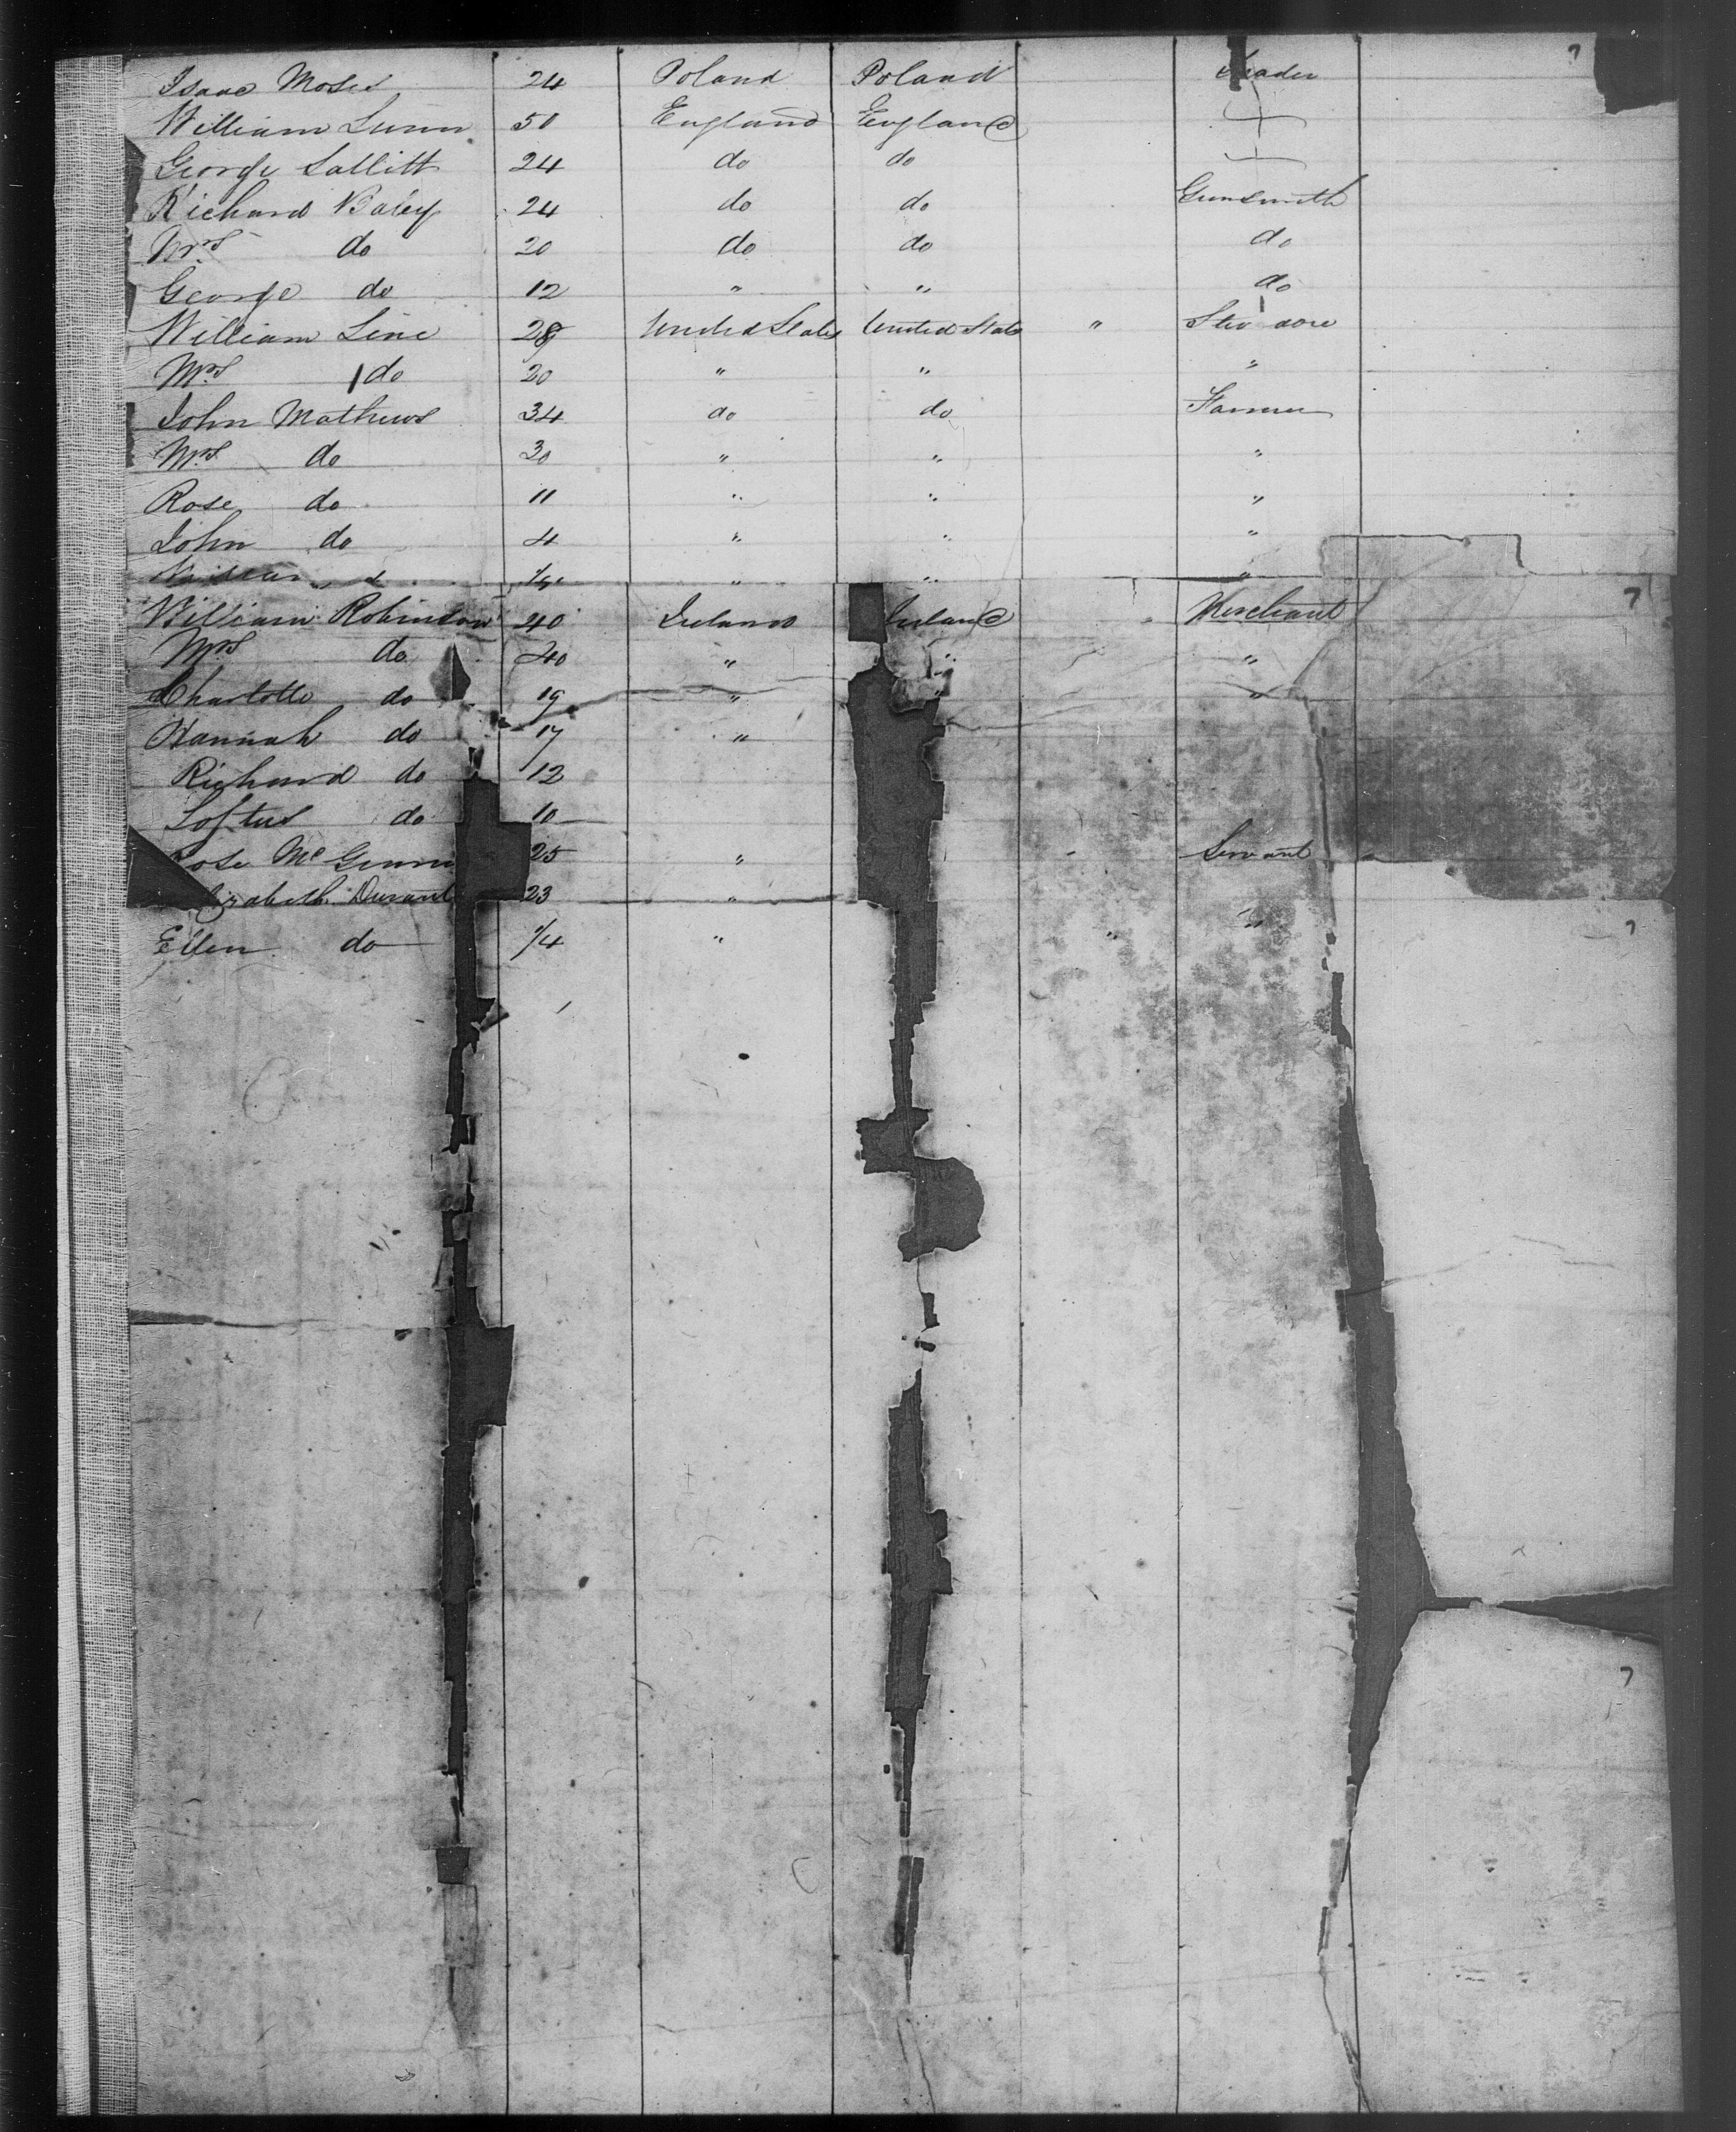 Isaac Moses 24 Poland Poland Trader
William Lunn 50 England England
George Sallitt 24 do do
Richard Baley 24 do do Gunsmith
Mrs do 20 do do do
George do 12 " " do
William Line 28 United States United State " Stevedore
Mrs do 20 " " "
John Mathews 34 do do Farmer
Mrs do 30 " " "
Rose do 11 " " "
John do 4 " " "
" " "
William Robinson 40 Ireland Ireland " Merchant
Mrs do 40 " " "
Charlotte do 19 " " "
Hannah do 17 "
Richard do 12
Loftus do 10
Rose Mc 25 " Servant
Elizabeth Durant 23 "
Ellen do 1/4 " " "